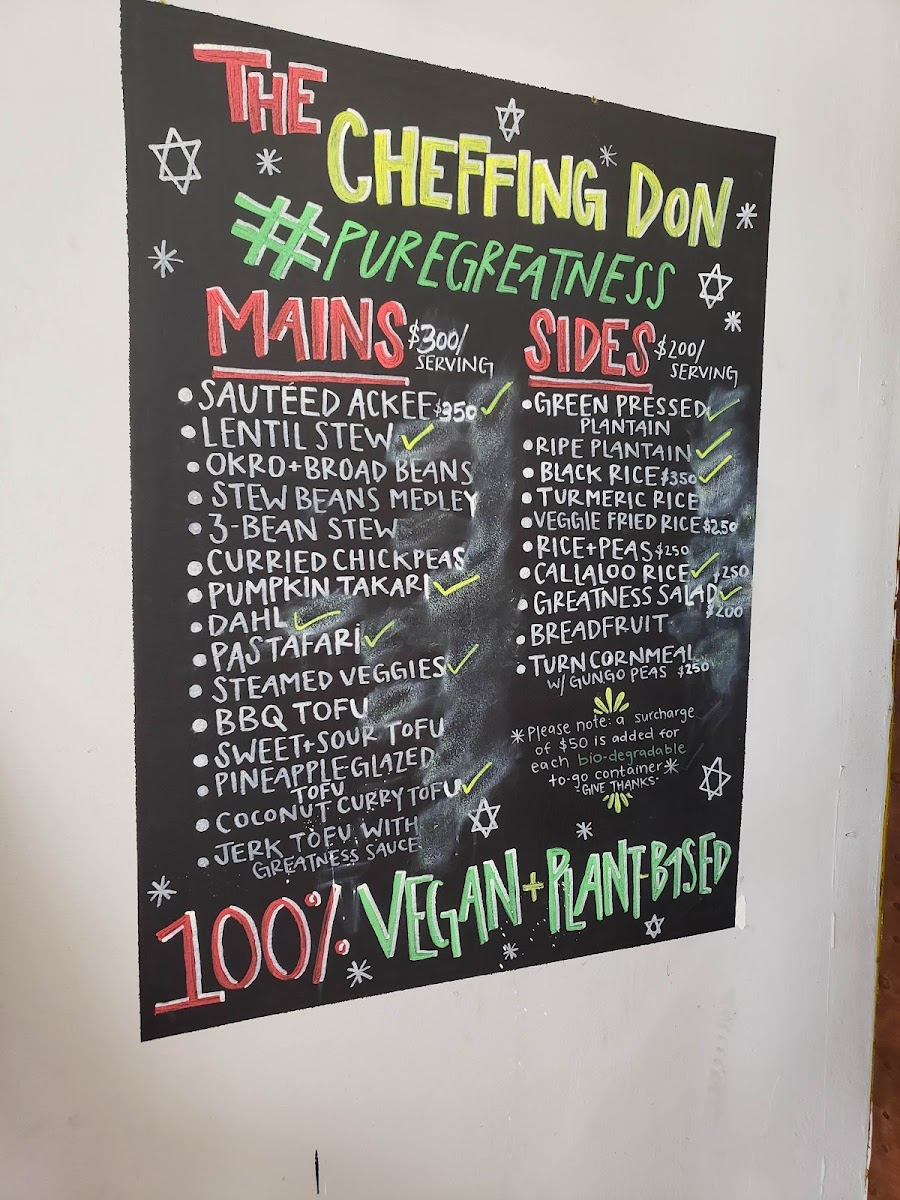 THE
CHEFFING DON
#PUREGREATNESS
MAINS $300/
SERVING
• SAUTÉED ACKEE $350 ✓
• LENTIL STEW ✓
• OKRO+BROAD BEANS
• STEW BEANS MEDLEY
• 3-BEAN STEW
• CURRIED CHICKPEAS
• PUMPKIN TAKARI ✓
• DAHL ✓
• PASTAFARI ✓
• STEAMED VEGGIES ✓
• BBQ TOFU
• SWEET+SOUR TOFU
• PINEAPPLE GLAZED
TOFU
• COCONUT CURRY TOFU ✓
• JERK TOFU WITH
GREATNESS SAUCE
SIDES $200/
SERVING
• GREEN PRESSED ✓
PLANTAIN
• RIPE PLANTAIN ✓
• BLACK RICE $350 ✓
• TURMERIC RICE
• VEGGIE FRIED RICE $250
• RICE+PEAS $250
• CALLALOO RICE ✓ $250
• GREATNESS SALAD ✓
$200
• BREADFRUIT
• TURN CORNMEAL
W/ GUNGO PEAS $250
*Please note: a surcharge
of $50 is added for
each bio-degradable
to-go container*
"GIVE THANKS"
100% VEGAN + PLANT-BASED